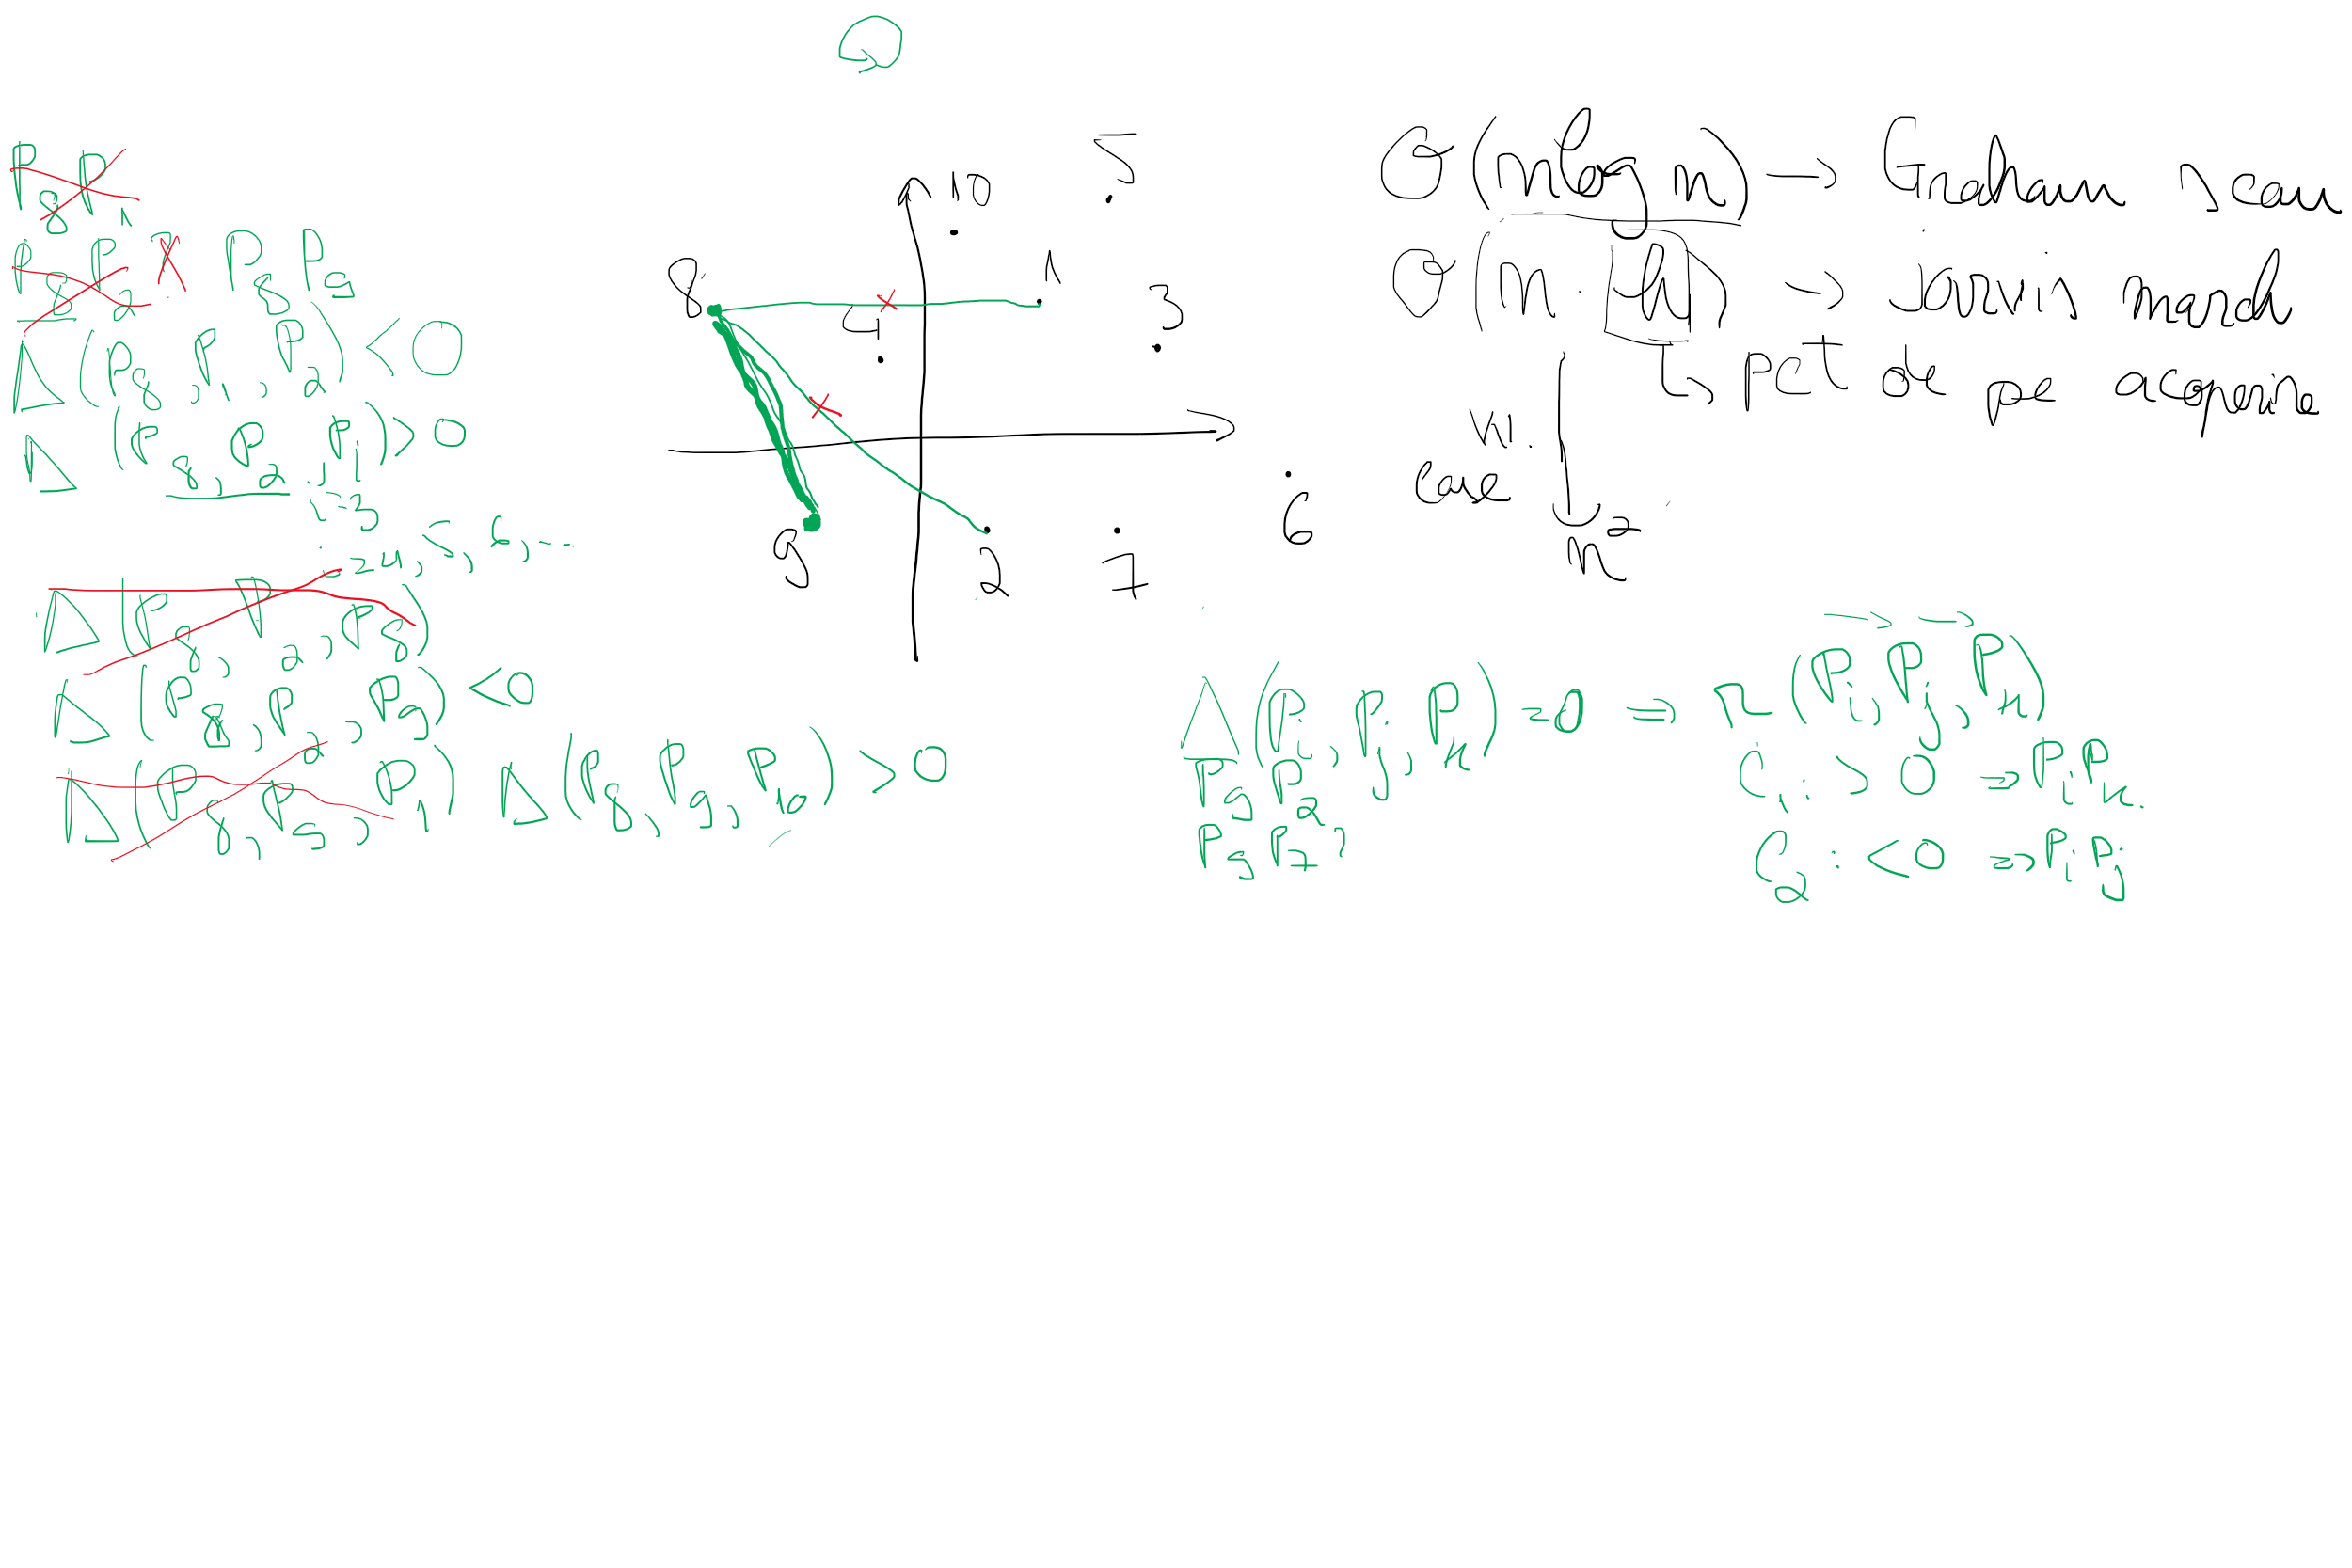 Q
P8P1
P8P2 P8P9
Δ(P8, P1, P2) < 0
Δ(P8, P2, Pi) > 0
i=3
i=4, 5, 6, ...
Δ(P8, P2, P8)
Δ(P8, P2, P9) < 0
Δ(P8, P9, P1) Δ(P8, P9, P10) > 0
10
5
8
1
4
3
9
2
7
6
O(n log n) → Graham scan
O(n · h) → Jarvis march
↳ pct de pe acoperire
w.
case
n²
Δ(Pi, Pj, Pk) = 0 ⇒ r(Pi, Pj, Pk)
P9P2
P9P7
C1: > 0 ⇒ PiPk
C2: < 0 ⇒ PiPj